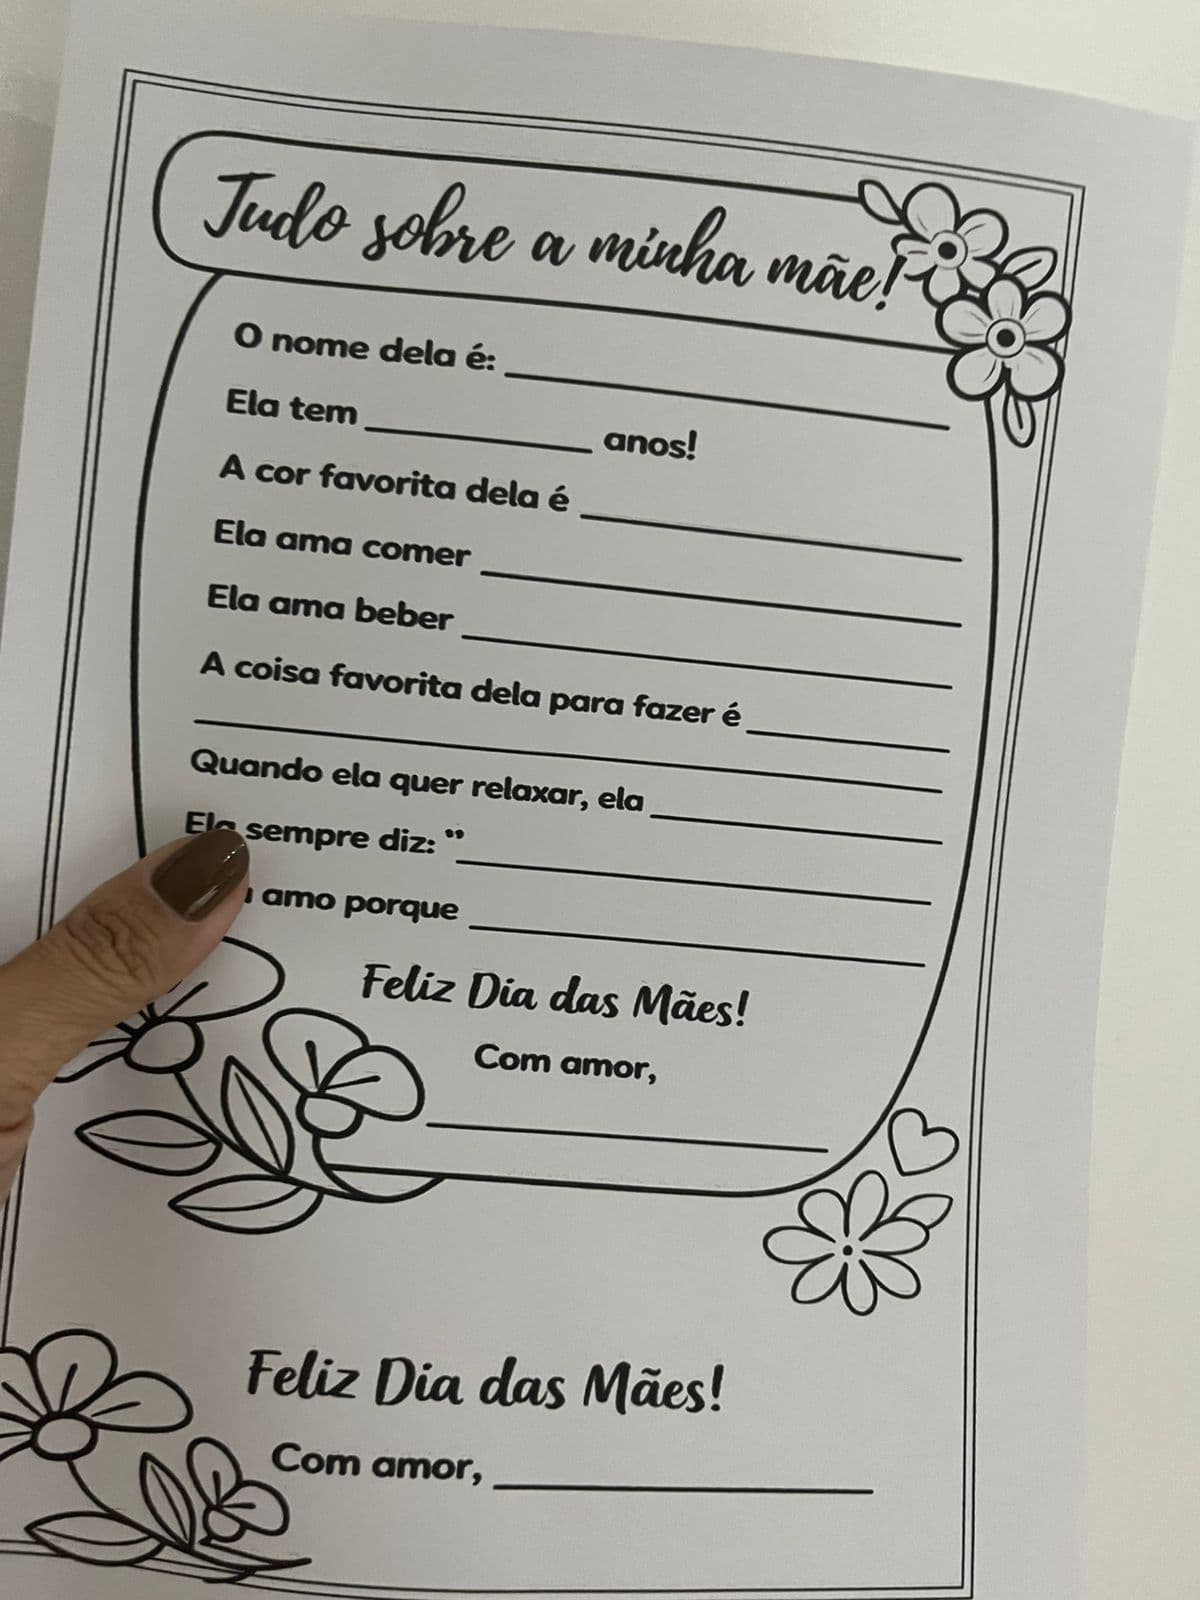 Tudo sobre a minha mãe!
O nome dela é:
Ela tem anos!
A cor favorita dela é
Ela ama comer
Ela ama beber
A coisa favorita dela para fazer é
Quando ela quer relaxar, ela
Ela sempre diz: “
amo porque
Feliz Dia das Mães!
Com amor,
Feliz Dia das Mães!
Com amor,